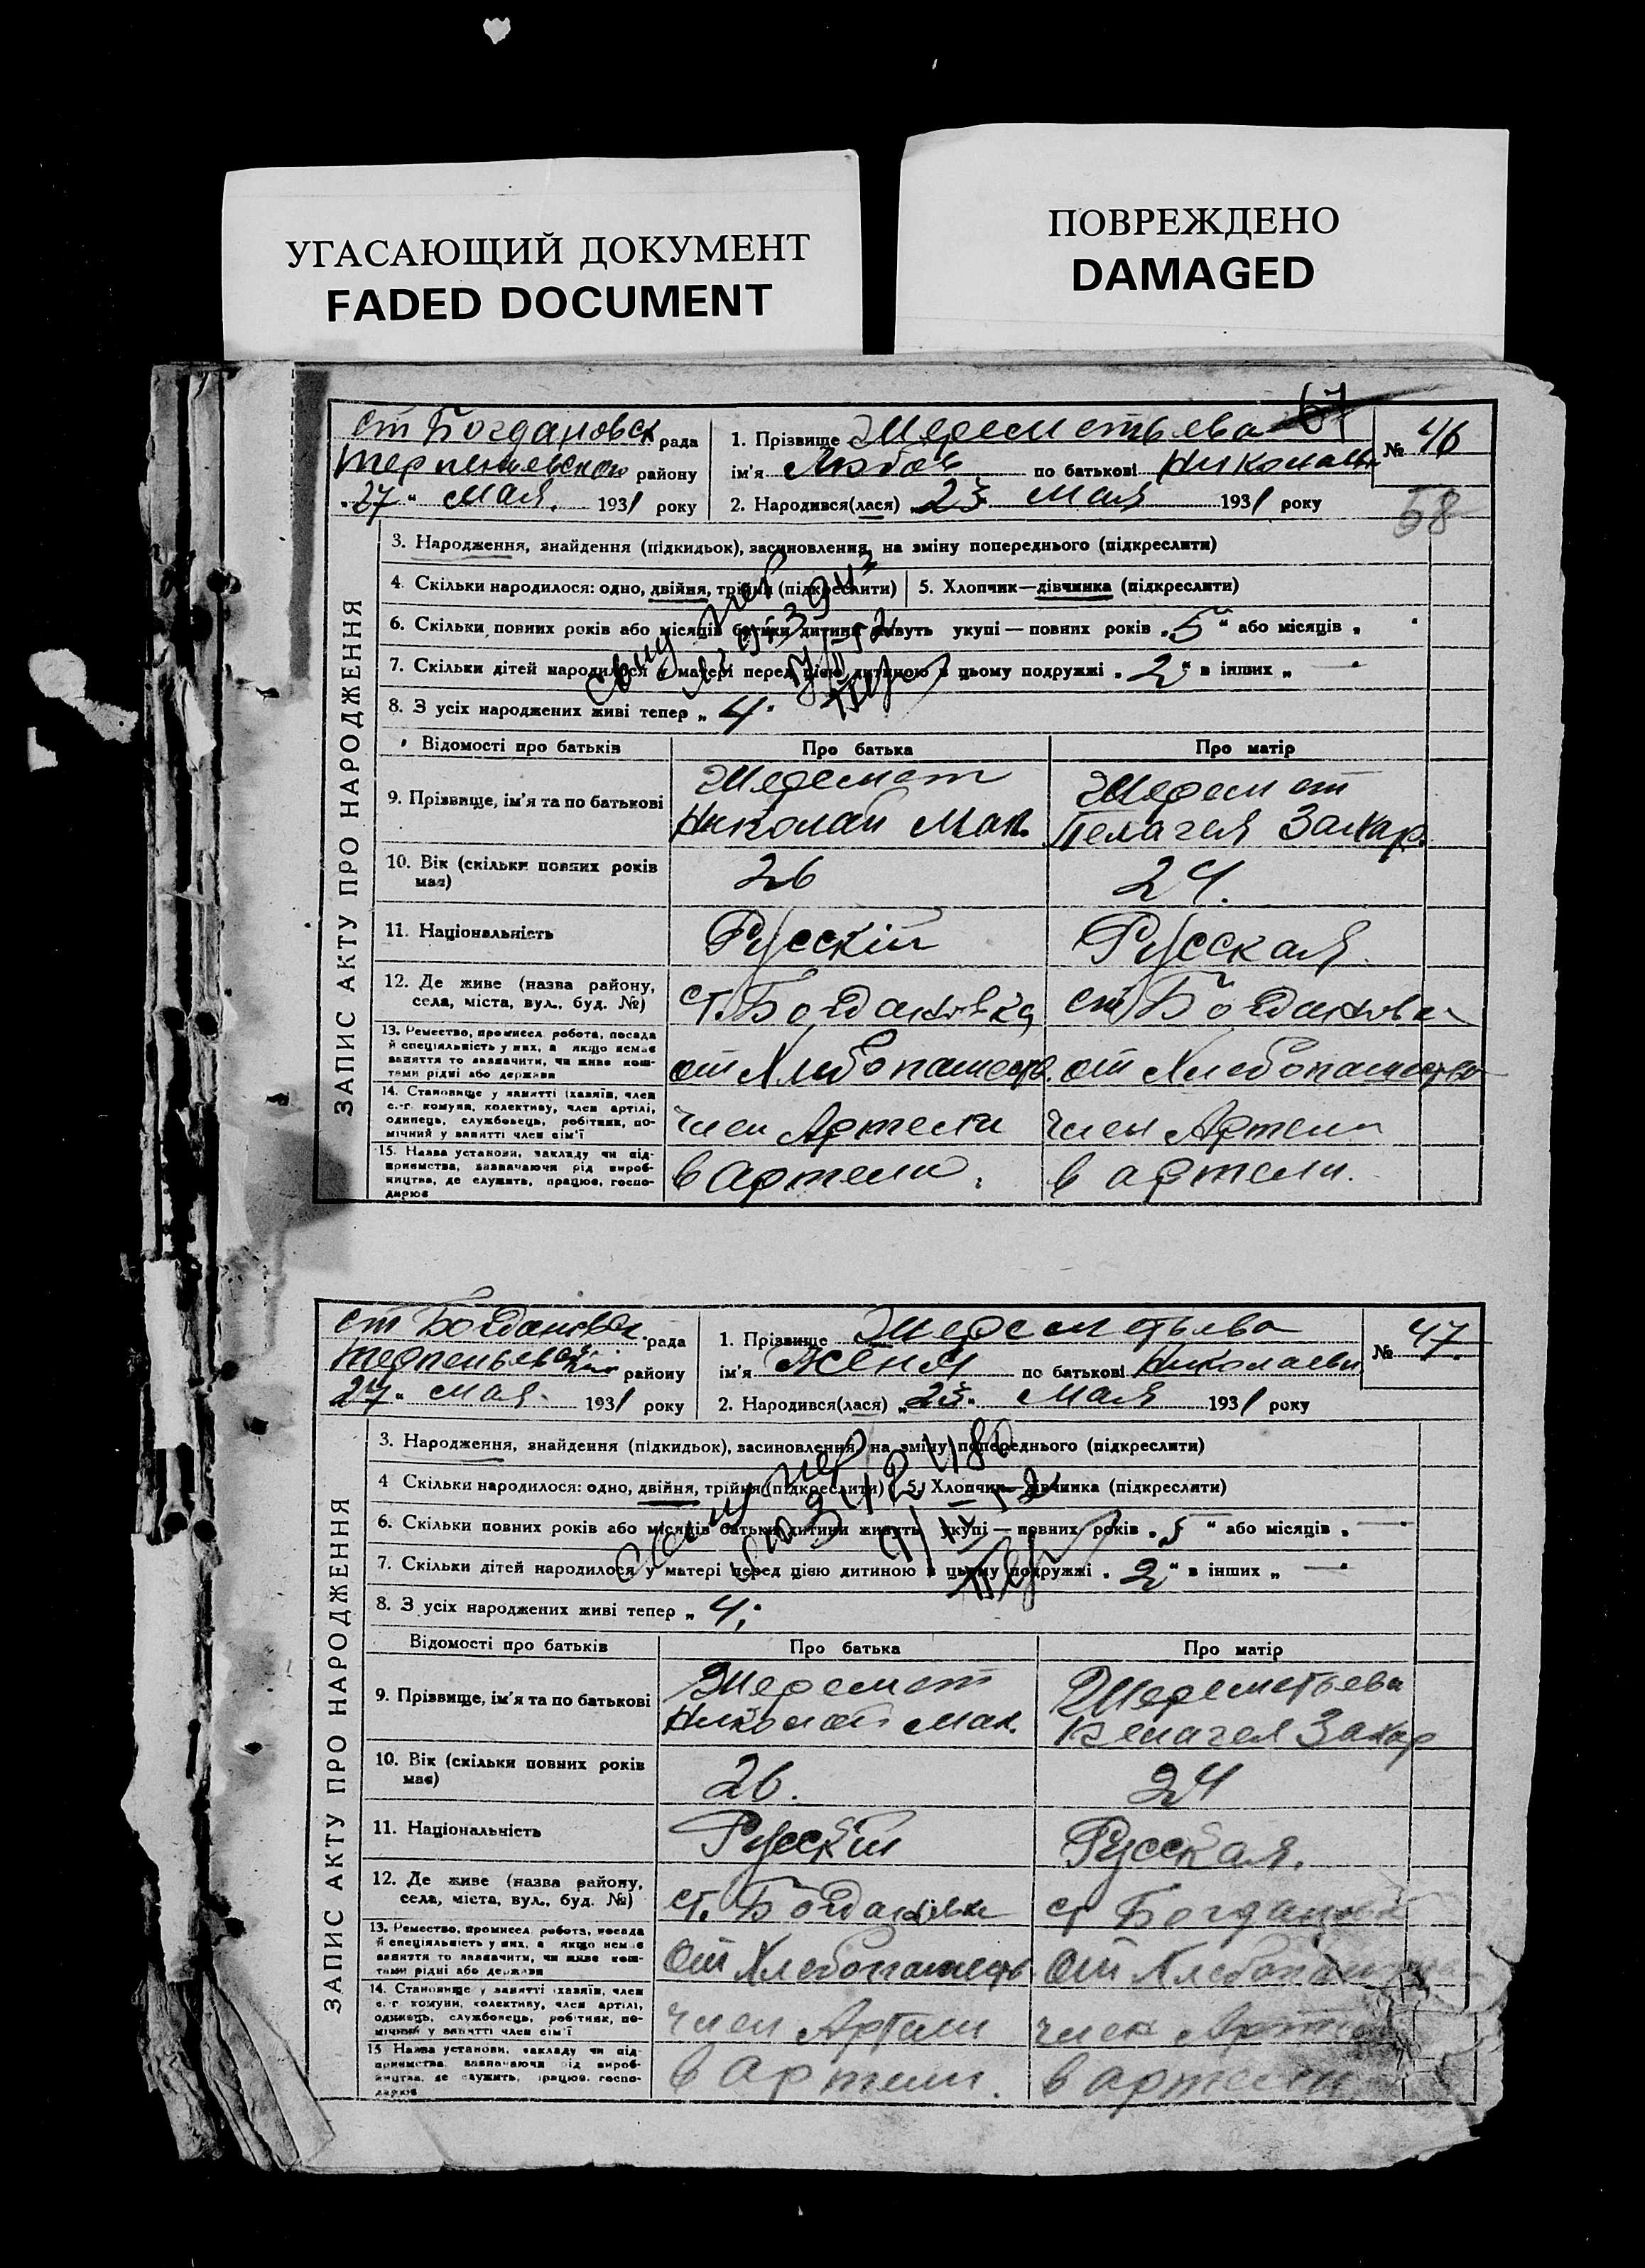 УГАСАЮЩИЙ ДОКУМЕНТ
FADED DOCUMENT
ПОВРЕЖДЕНО
DAMAGED
67
ст Богдановск рада
району
"27" мая. 1931 року
1. Прізвище Шереметьева
ім'я Любов по батькові Николаев
2. Народився(лася) 23 мая 1931 року
№ 46
58
ЗАПИС АКТУ ПРО НАРОДЖЕННЯ
3. Народження, знайдення (підкидьок), засиновлення, на зміну попереднього (підкреслити)
4. Скільки народилося: одно, двійня, трійня (підкреслити) 5. Хлопчик—дівчинка (підкреслити)
6. Скільки повних років або місяців батьки дитини живуть укупі — повних років „5" або місяців „
7. Скільки дітей народилося у матері перед цією дитиною в цьому подружжі „2" в інших „
8. З усіх народжених живі тепер „4"
Відомості про батьків Про батька Про матір
9. Прізвище, ім'я та по батькові
Шеремет
Николай Мак.
Шеремет
Пелагея Захар.
10. Вік (скільки повних років має) 26 24.
11. Національність Русскій Русская
12. Де живе (назва району, села, міста, вул., буд. №)
ст. Богдановка ст Богдановка
13. Ремество, промисел, робота, посада
й спеціяльність у них, а якщо немає
заняття то зазначити, чи живе кош-
тами рідні або держави
от Хлебопашеств. от Хлебопашество
14. Становище у занятті (хазяїн, член
с.-г. комуни, колективу, член артілі,
одинець, службовець, робітник, по-
мічний у занятті член сім'ї
член Артели член Артели
15. Назва установи, закладу чи під-
приємства, зазначаючи рід вироб-
ництва, де служить, працює, госпо-
дарює
в артели. в артели.
ст Богдановск. рада
району
27" мая. 1931 року
1. Прізвище Шереметьева
ім'я Женя по батькові Николаевн
2. Народився(лася) „23" Мая 1931 року
№ 47.
ЗАПИС АКТУ ПРО НАРОДЖЕННЯ
3. Народження, знайдення (підкидьок), засиновлення, на зміну попереднього (підкреслити)
4 Скільки народилося: одно, двійня, трійня (підкреслити) 5. Хлопчик—дівчинка (підкреслити)
6. Скільки повних років або місяців батьки дитини живуть укупі — повних років „5" або місяців „—
7. Скільки дітей народилося у матері перед цією дитиною в цьому подружжі „2" в інших „—"
8. З усіх народжених живі тепер „4"
Відомості про батьків Про батька Про матір
9. Прізвище, ім'я та по батькові
Шеремет
Николай Мак.
Шереметьева
Пелагея Захар
10. Вік (скільки повних років має) 26. 24
11. Національність Русскій Русская.
12. Де живе (назва району, села, міста, вул., буд. №)
ст. Богдановка ст Богдановка
13. Ремество, промисел, робота, посада
й спеціяльність у них, а якщо немає
заняття то зазначити, чи живе кош-
тами рідні або держави
от Хлебопашеств от
14. Становище у занятті (хазяїн, член
с.-г. комуни, колективу, член артілі,
одинець, службовець, робітник, по-
мічний у занятті член сім'ї
член Артели член
15 Назва установи, закладу чи під-
приємства, зазначаючи рід вироб-
ництва, де служить, працює, госпо-
дарює
в артели. в артели